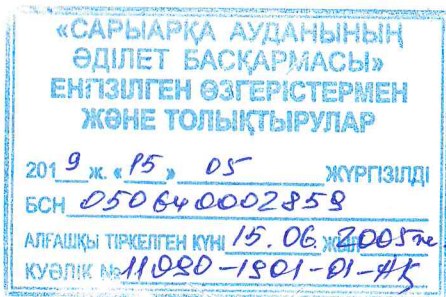 «САРЫАРҚА АУДАНЫНЫҢ
ӘДІЛЕТ БАСҚАРМАСЫ»
ЕНГІЗІЛГЕН ӨЗГЕРІСТЕРМЕН
ЖӘНЕ ТОЛЫҚТЫРУЛАР
2019 ж. «15» 05 ЖҮРГІЗІЛДІ
БСН 050640002859
АЛҒАШҚЫ ТІРКЕЛГЕН КҮНІ 15.06. 2005ж.
КУӘЛІК № 11090-1901-01-АҚ